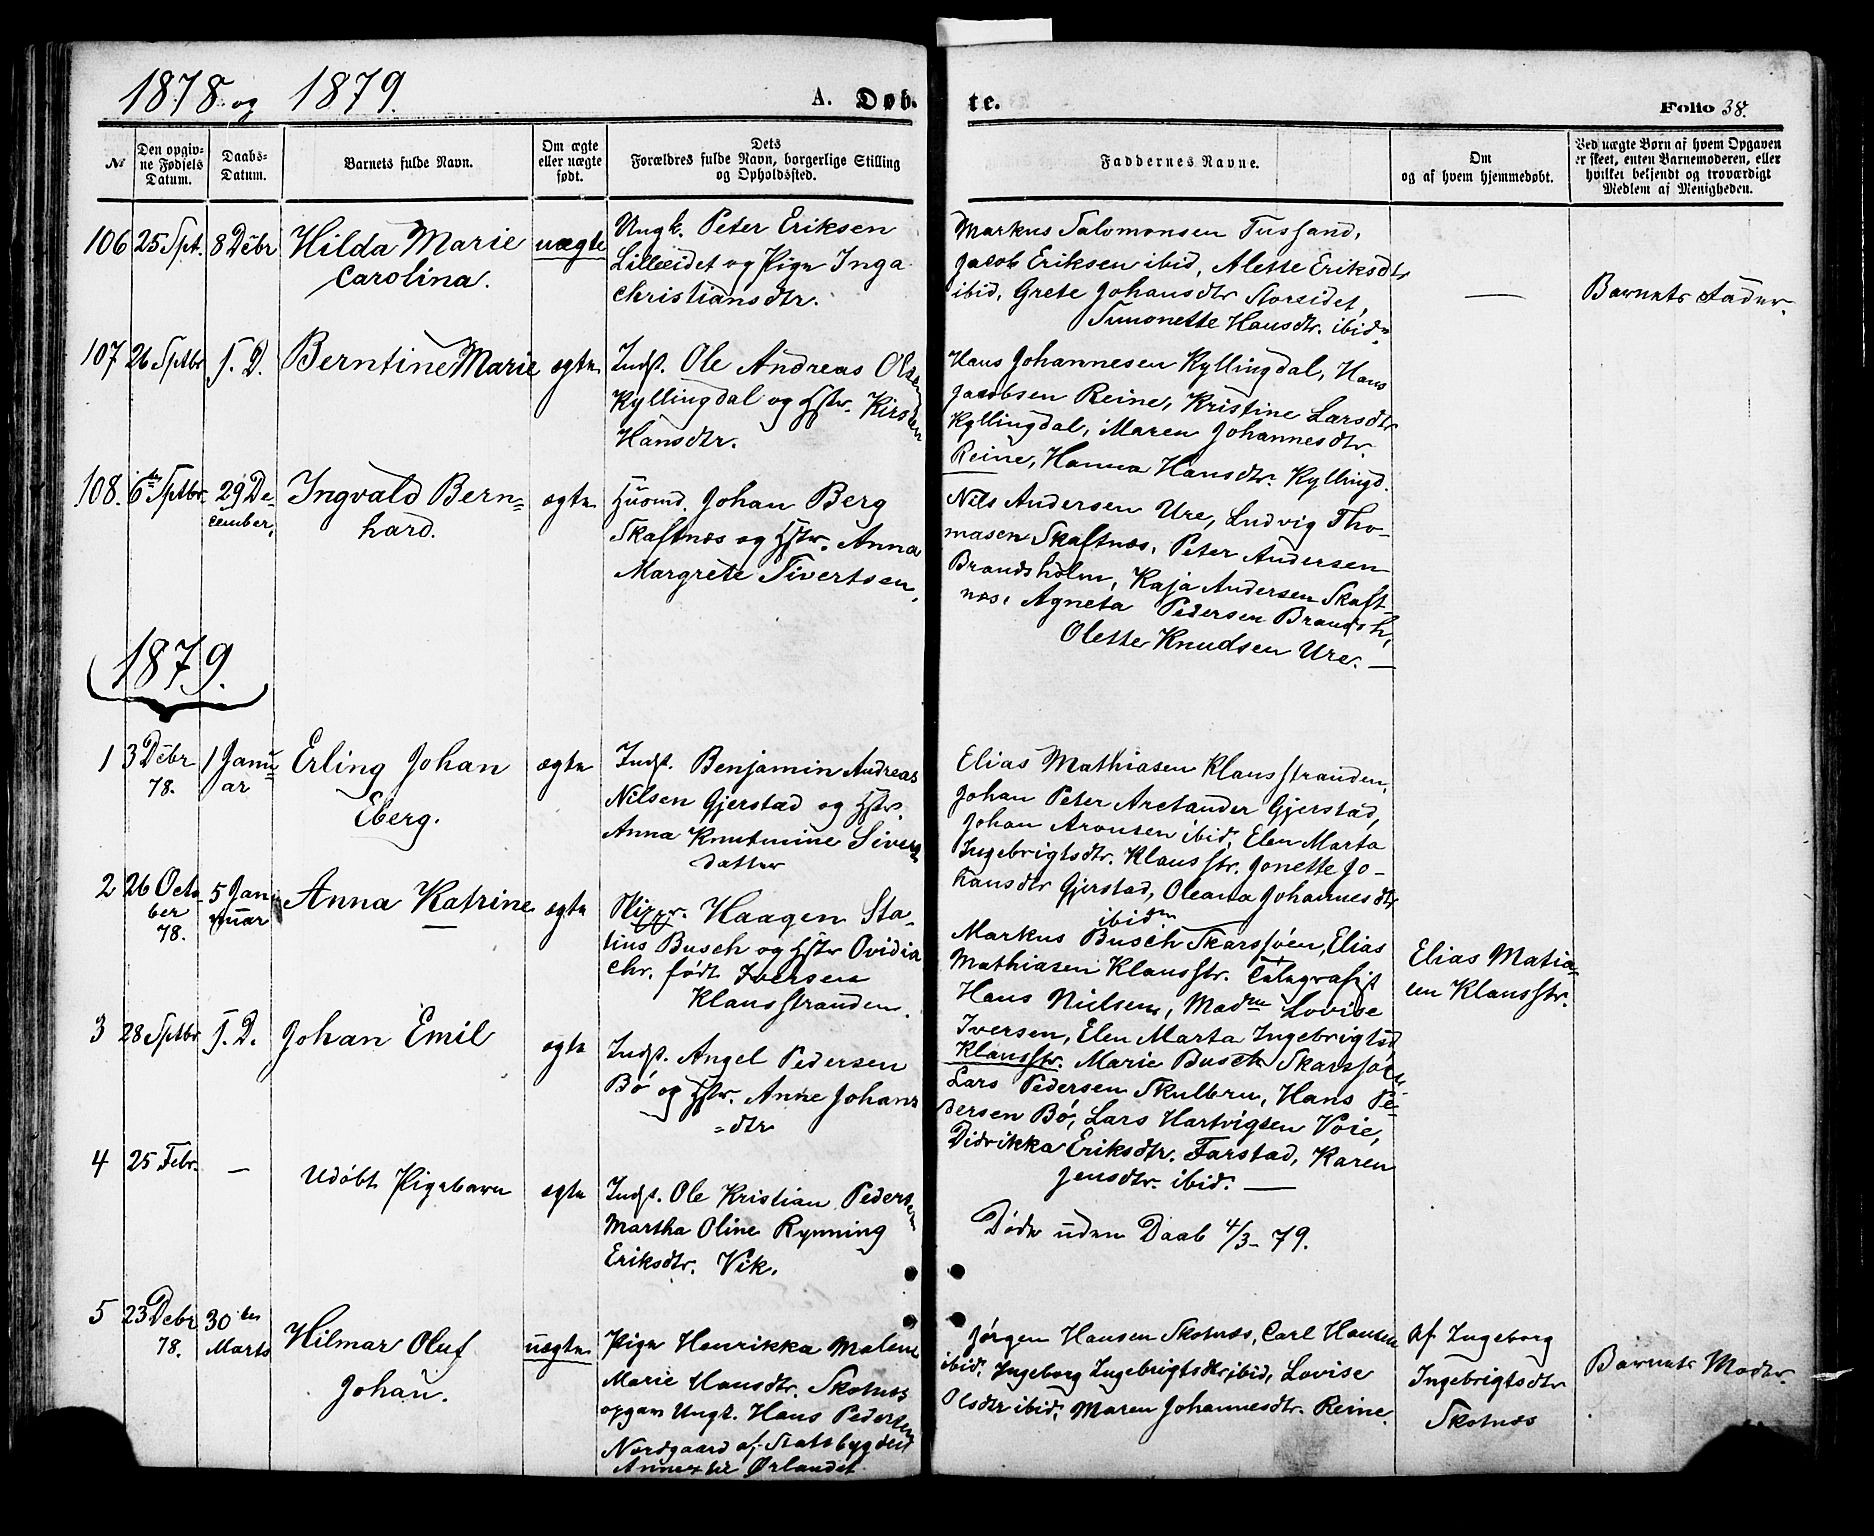 1878 og 1879.
A. Døb-
te.
Folio 38.
No
Den opgiv-
ne Fødsels
Datum.
Daabs-
Datum.
Barnets fulde Navn.
Om ægte
eller uægte
født.
Dets
Forældres fulde Navn, borgerlige Stilling
og Opholdssted.
Faddernes Navne.
Om
og af hvem hjemmedøbt.
Ved uægte Børn af hvem Opgaven
er skeet, enten Barnemoderen, eller
hvilket bekjendt og troværdigt
Medlem af Menigheden.
106 25 Spt. 8 Debr Hilda Marie uægte
Carolina.
Ungk. Peter Eriksen
Lilleeidet og Pige Inga
Christiansdtr.
Markus Salomonsen Tussand,
Jacob Eriksen ibid, Alette Eriksdtr
ibid, Grete Johansdtr Storeidet,
Simonette Hansdtr. ibidm
—
Barnets Fader.
107 26 Sptbr f. D. Berntine Marie ægte
Indst. Ole Andreas Olsen
Kyllingdal og Hstr. Kirsten
Hansdtr.
Hans Johannesen Kyllingdal, Hans
Jacobsen Reine, Kristine Larsdtr
Kyllingdal, Maren Johannesdtr.
Reine, Hanna Hansdtr. Kyllingd.
108. 6te Sptbr. 29 De-
cember,
Ingvald Bern-
hard.
ægte
Husmd. Johan Berg
Skaftnæs og Hstr. Anna
Margrete Sivertsen,
Nils Andersen Ure, Ludvig Tho-
masen Skaftnæs, Peter Andersen
Brandsholm, Kaja Andersen Skaft-
næs, Agneta Pedersen Brandsh,
Olette Knudsen Ure. —
1879.
1 3 Debr
78.
1 Janu-
ar
Erling Johan
Eberg.
ægte
Indst. Benjamin Andreas
Nilsen Gjerstad og Hstr.
Anna Knutmine Siverts
datter
Elias Mathiasen Klausstranden,
Johan Peter Arctander Gjerstad,
Johan Arontsen ibid, Elen Marta
Ingebrigtsdtr. Klausstr. Jonette Jo-
hansdtr Gjerstad, Oleana Johannesdtr
ibidm
2 26 Octo-
ber
78.
5 Jan-
uar
Anna Katrine ægte
—
Haagen Sta-
tius Busch og Hstr Ovidia
Chr. født Iversen
Klausstranden.
Markus Busch Skarssøen, Elias
Mathiasen Klausstr. Telegrafist
Hans Nielsen, Madme Lovise
Iversen, Elen Marta Ingebrigtsd
Klausstr. Marie Busch Skarssøen
Elias Matia-
sen Klausstr.
3 28 Sptbr f. D. Johan Emil ægte
Indst. Angel Pedersen
Bø og Hstr. Anne Johans
=dtr
Lars Pedersen Skulbru, Hans Pe-
dersen Bø, Lars Hartvigsen Voie,
Didrikka Eriksdtr. Farstad, Karen
Jensdtr. ibid. —
4 25 Febr. — Udøbt Pigebarn ægte
Indst. Ole Kristian Pedersen
Martha Oline Rynning
Eriksdtr. Vik.
Døde uden Daab 4/3- 79.
5 23 Debr
78.
30 ten
Marts
Hilmar Oluf
Johan.
uægte
Pige Henrikka Malene
Marie Hansdtr. Skotnæs
opgav Ungk. Hans Pedersen
Nordgaard af Statsbygdens
Annex til Ørlandet
Jørgen Hansen Skotnæs, Carl Hansen
ibid, Ingeborg Ingebrigtsdtr ibid, Lovise
Olsdtr ibid, Maren Johannesdtr. Reine.
Af Ingeborg
Ingebrigtsdtr
Skotnæs
Barnets Moder.